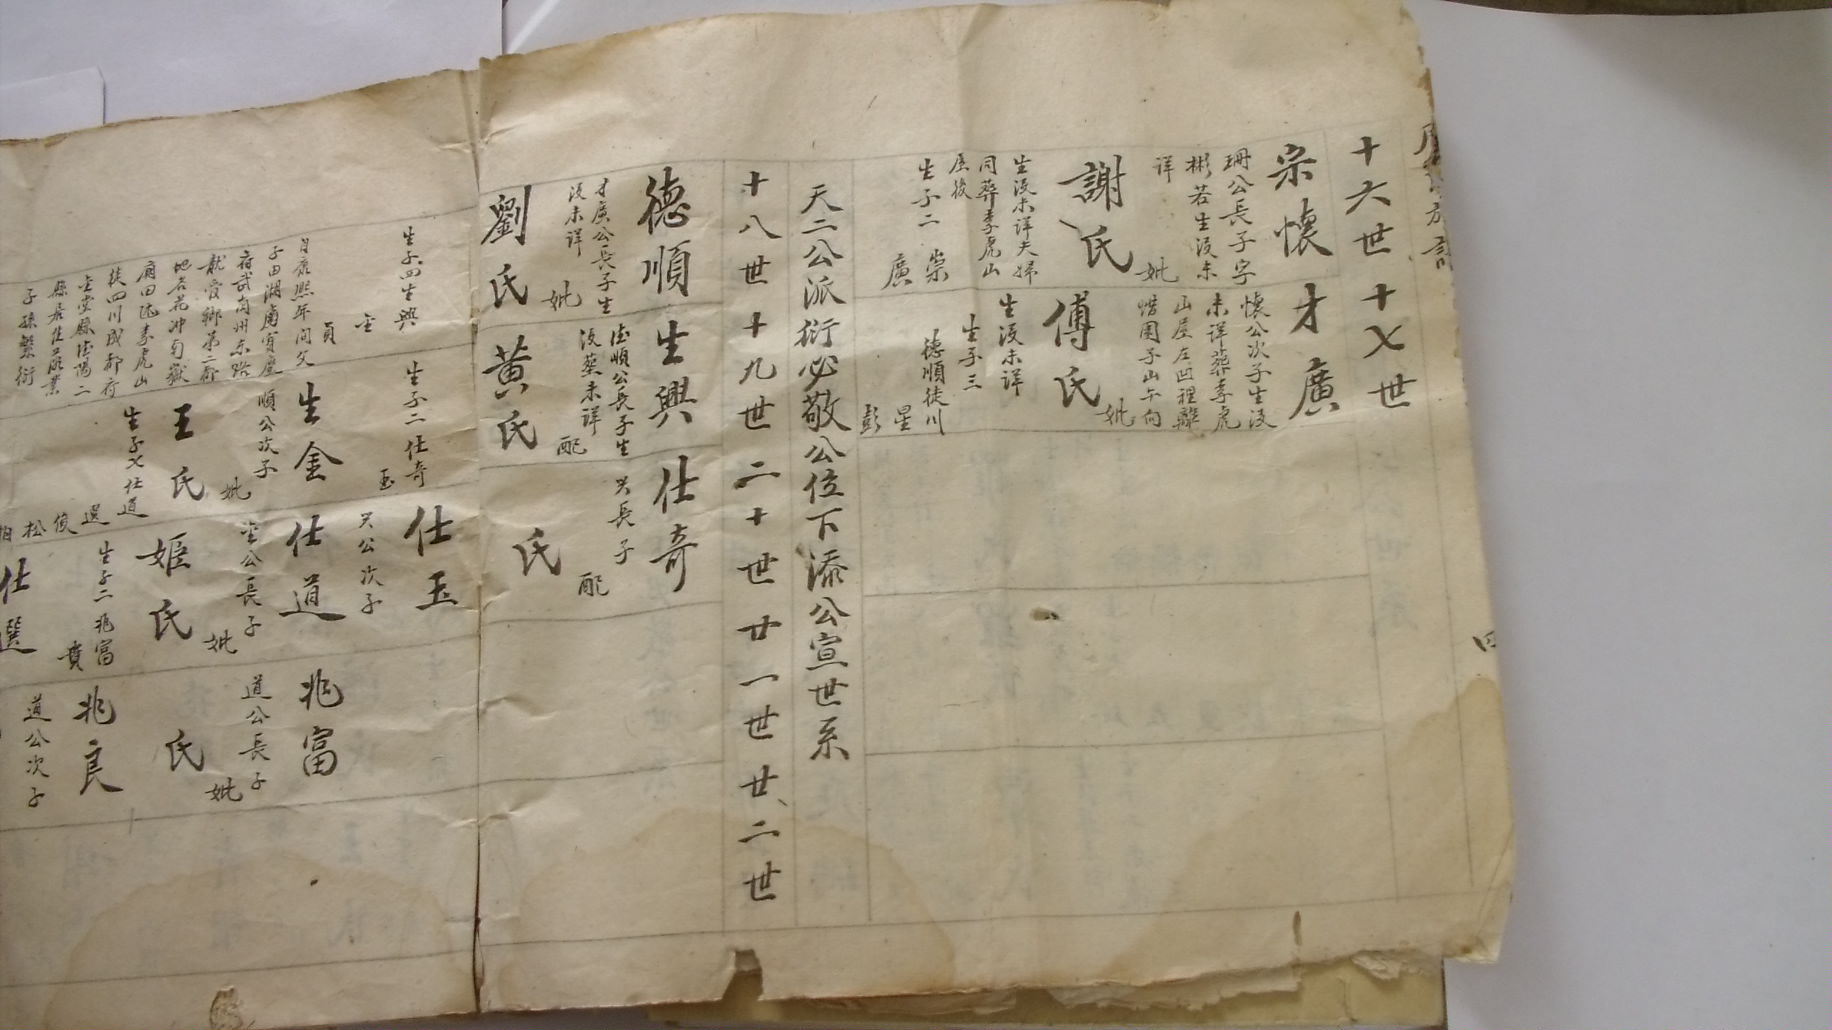 十六世 十七世
宗懷
珊公長子字
彬若生没未
详
妣
謝氏
生没未详夫婦
同葬李虎山
屋後
生子二
崇
廣
才廣
懷公次子生没
未详葬李虎
山屋左凹裡離
惜圍子山午向
妣
傅氏
生没未详
生子三
德順徒川
星
彭
天二公派衍必敬公位下添公宣世系
十八世 十九世 二十世 廿一世 廿二世
德順
才廣公長子生
没未详
妣
劉氏
生子四生興
金
員
自康熙年间父
子由湖南寶慶
府武岡州東路
獻
地名花冲
廟田李虎山
徒四川成都府
金堂縣德陽二
縣居住荻業
子孫繁衍
生興
德順公長子生
没葬未详
配
黄氏
生子二仕奇
玉
生金
順公次子
妣
王氏
生子七仕道
選
俊
松
相
仕奇
兴長子
配
氏
仕玉
兴公次子
仕道
金公長子
妣
姬氏
生子二兆富
貴
仕選
兆富
道公長子
妣
氏
兆良
道公次子
四